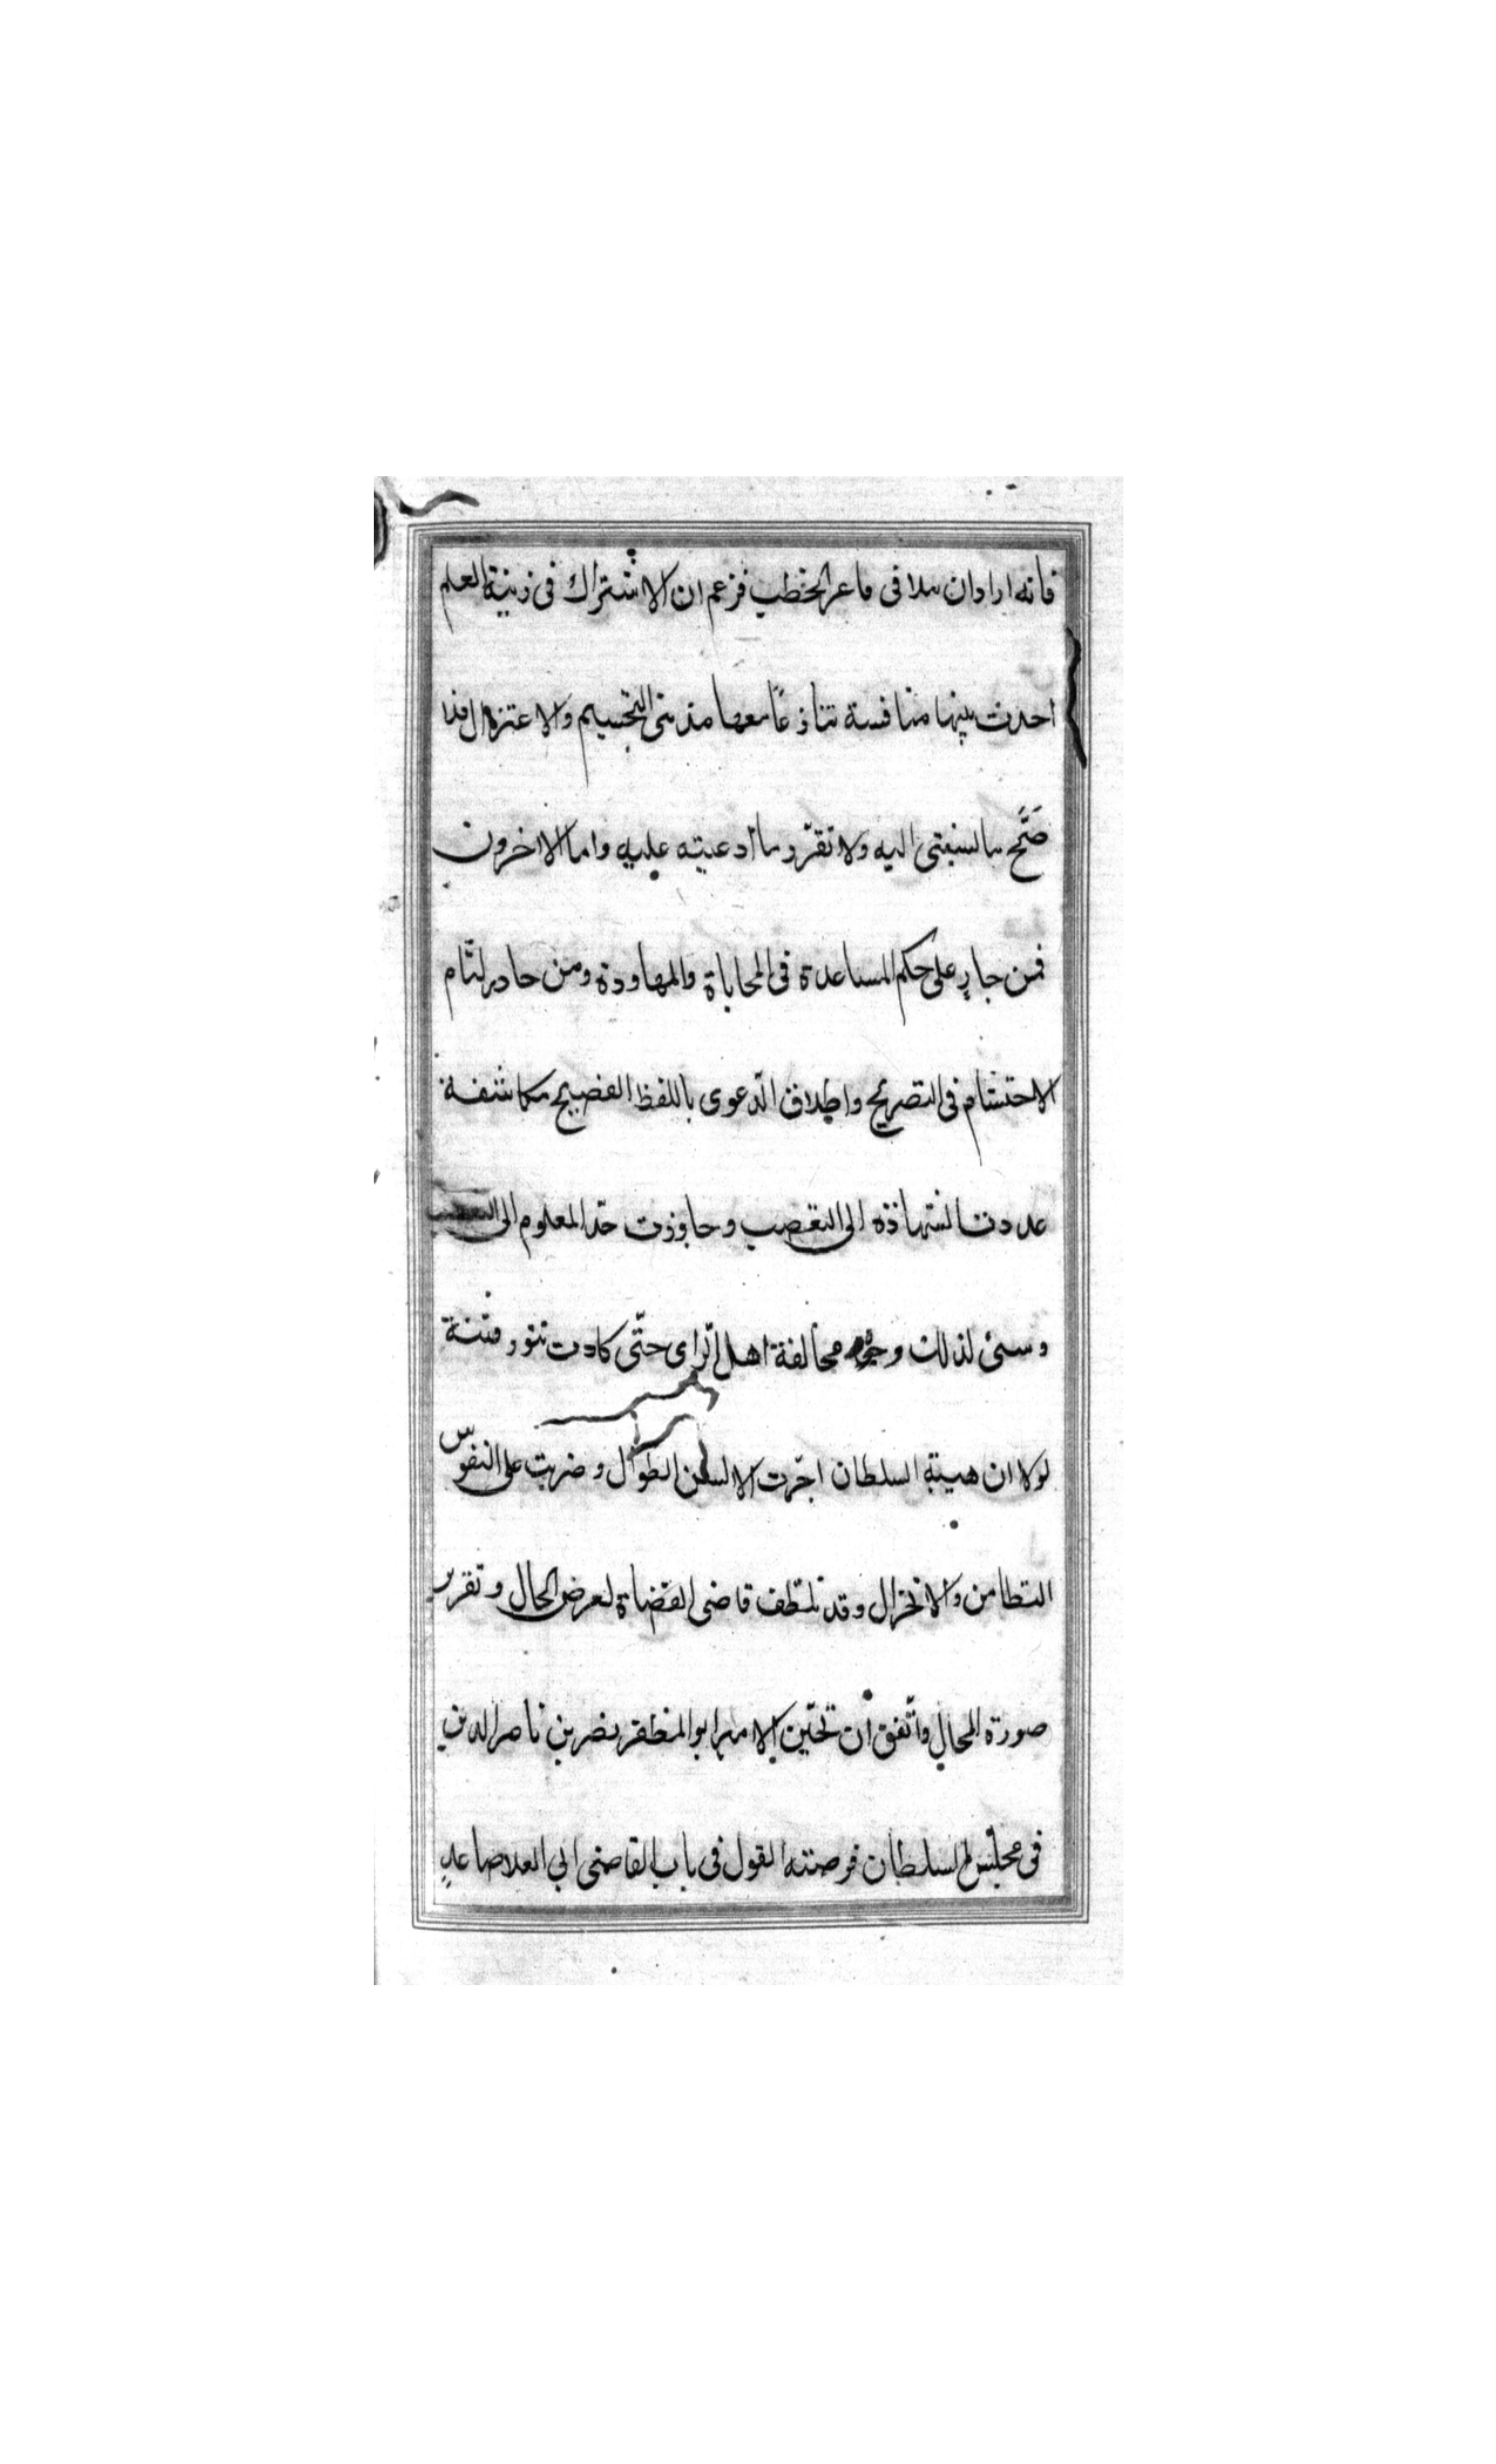 فانه اراد ان يتلافى ماعر الخطب فزعم ان الاشتراك فى زينة العلم
احدث بينهما منافسة تنازعا معها مذهبى التجسيم والاعتزال فلا
صَحَّ ما نسبتنى اليه ولا تقرّر ما أدعيته عليه واما الاخرون
فمن جارٍ على حكم المساعدة فى المحاباة والمهاودة ومن حادر لثام
الاحتشام فى التصريح واطلاق الدّعوى باللفظ الفصيح مكاشفة
عدت الشهادة الى التعصب وجاوزت حدّ المعلوم الى
لذلك وجوه مخالفة اهل الرّاى حتّى كادت تثور فتنة
لولا ان هيبة السلطان اجرّت الالسن الطوال وضربت على النفوس
التطامن والانخزال وقد تلطف قاضى القضاة لعرض الحال وتقرير
صورة المحال واتّفق أن تحيّن الامير ابو المظفر نصر بن ناصر الدين
فى مجلس السلطان فرصته القول فى باب القاضى ابى العلا صاعدٍ